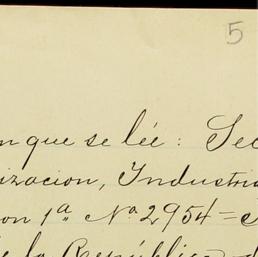 5
n que se lée: Sec
ización, Industria
on 1ª Nº 2954=
de la República d